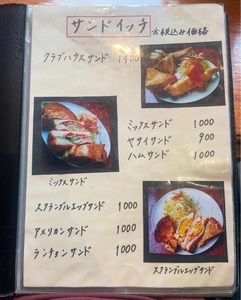 サンドイッチ ☆税込み価格
クラブハウスサンド 1400
ミックスサンド 1000
ヤサイサンド 900
ハムサンド 1000
ミックスサンド
スクランブルエッグサンド 1000
アメリカンサンド 1000
ランチョンサンド 1000
スクランブルエッグサンド